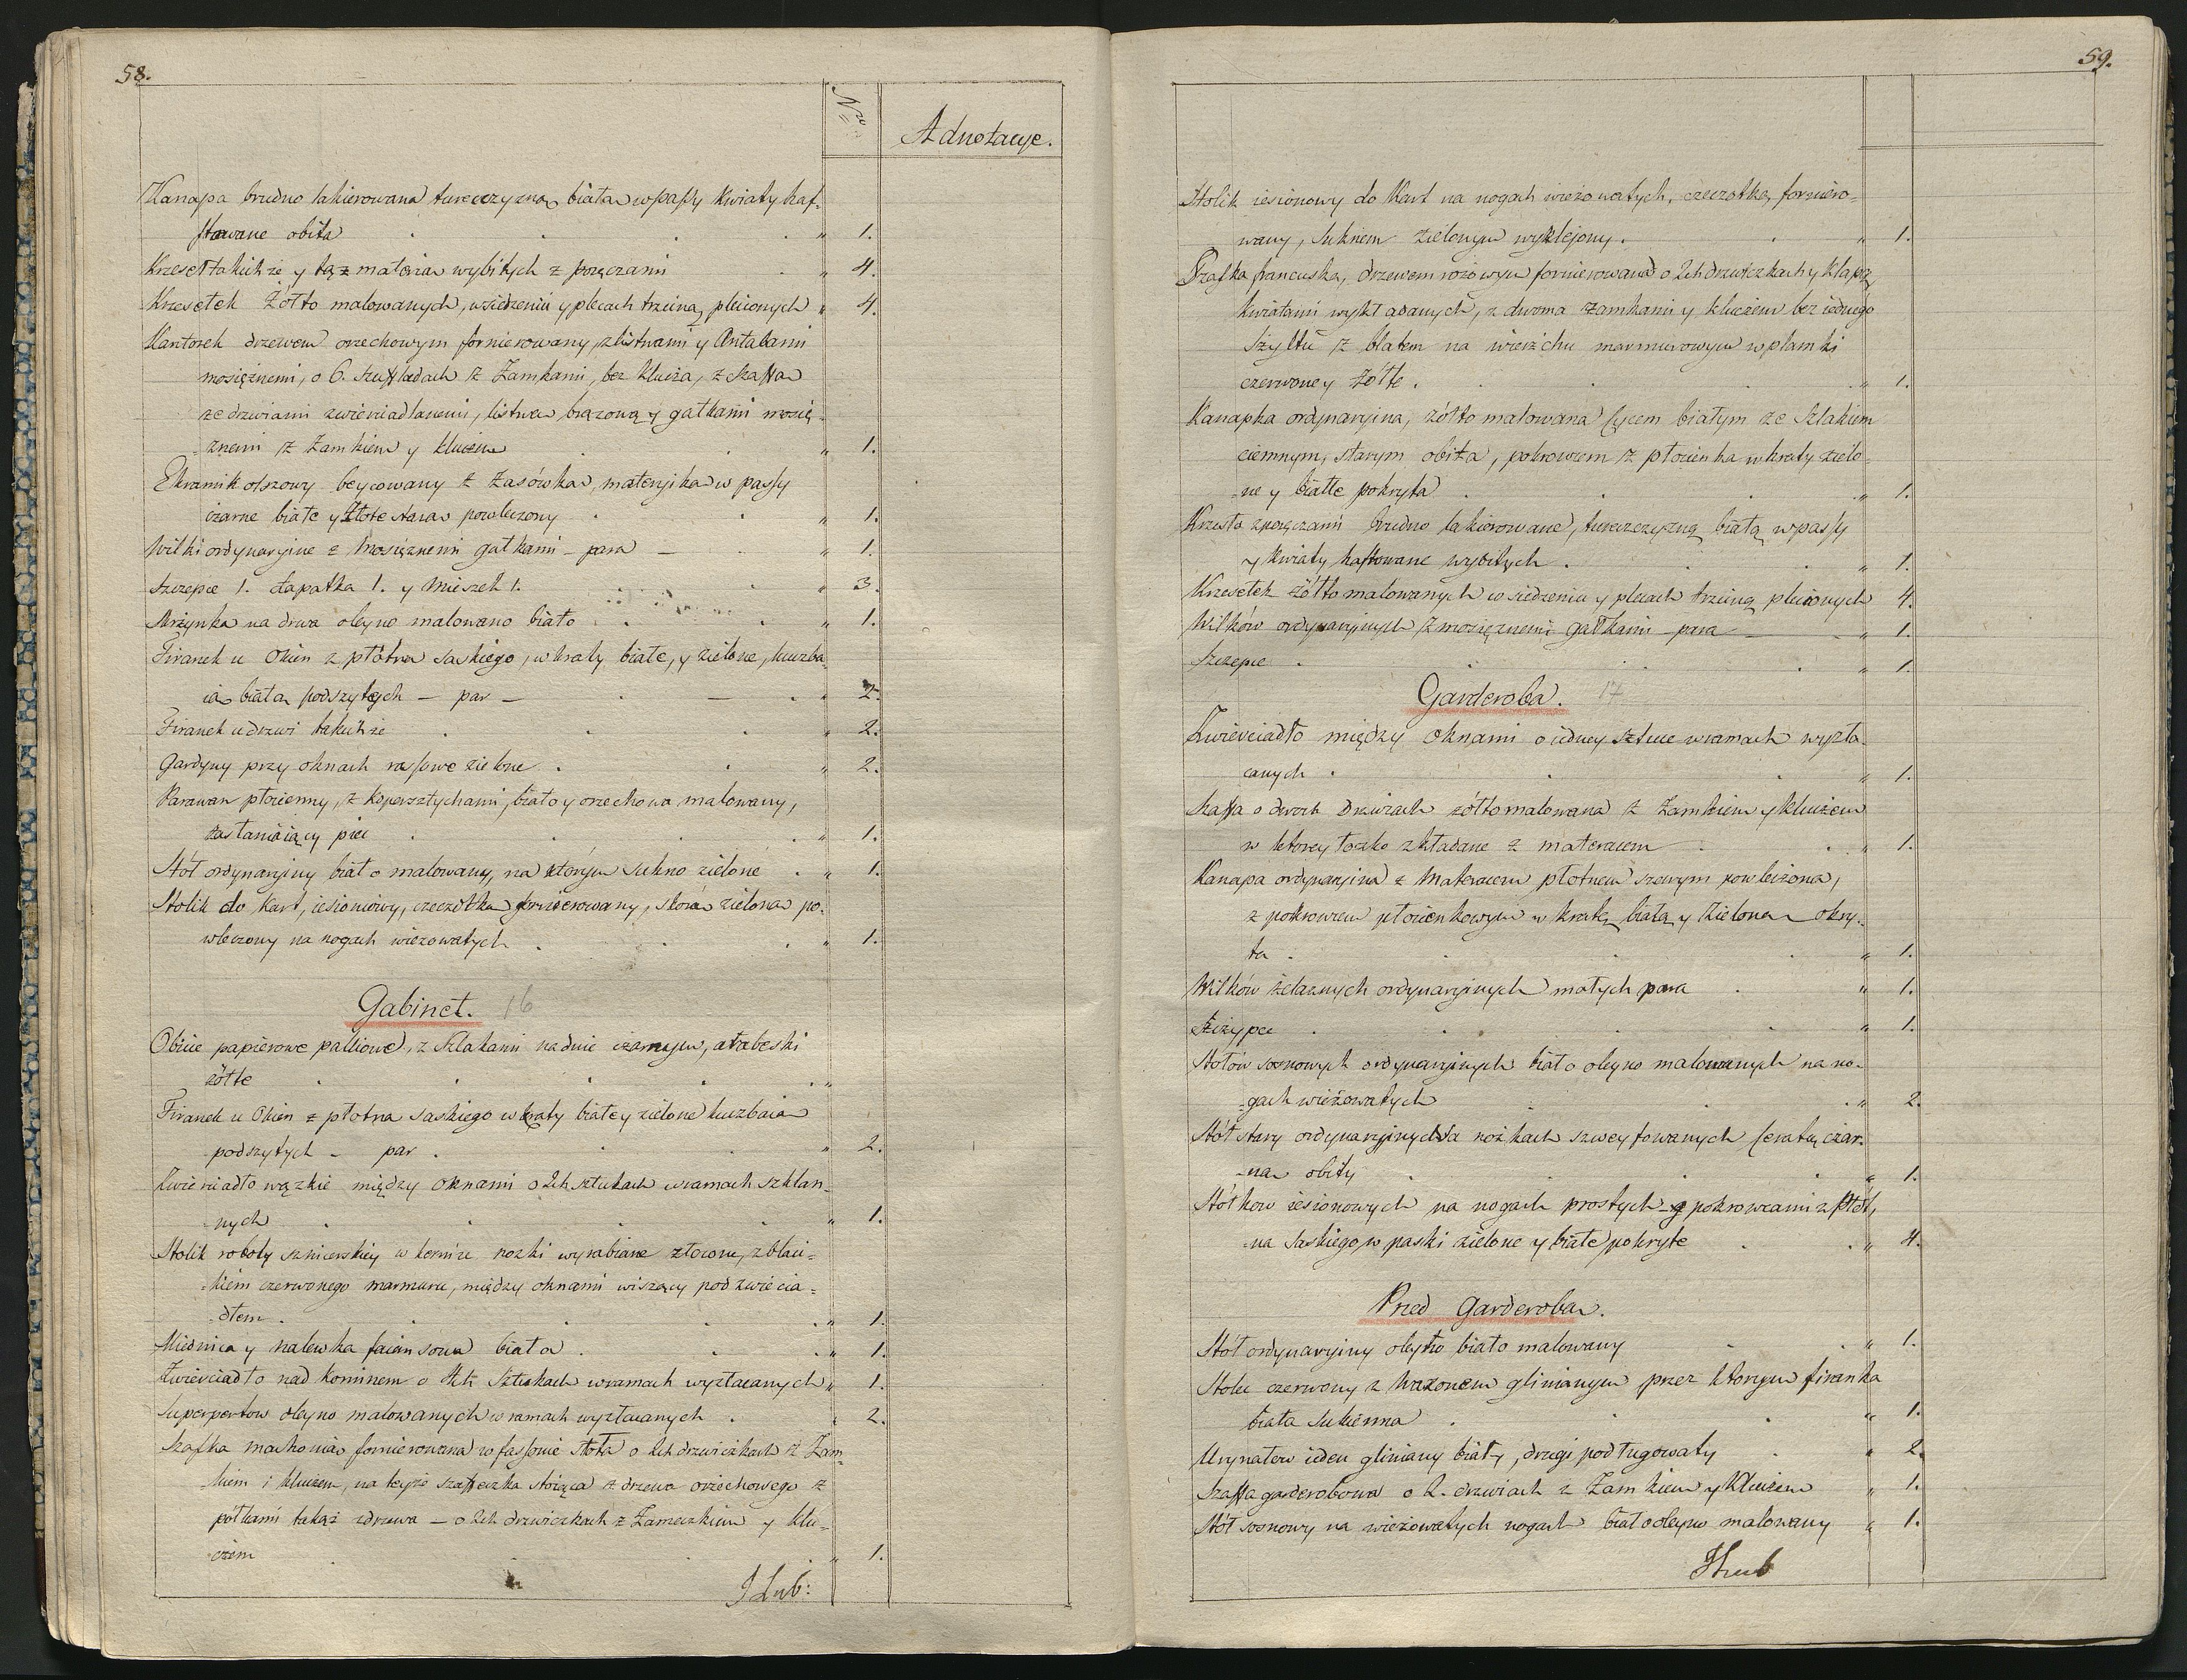 58.
Nro
Adnotacye.
Kanapa brudno lakierowana turecczyzną białą w passy kwiaty haf-
ftowane obita " 1.
Krzeseł takichże y tąż materią wybitych z poręczami " 4.
Krzesełek żółto malowanych, w siedzeniu y plecach trzciną plecionych " 4.
Kantorek drzewem orzechowym fornierowany, z listwami y Antabami
mosiężnemi, o 6. szufladach z Zamkami, bez klucza, z szaffą
ze drzwiami zwierciadlanemi, listwą brązową y gałkami mosię-
żnemi z Zamkiem y kluczem " 1.
Ekranik olszowy beycowany z Zasówką, materyiką w passy
czarne białe y złote starą powleczony " 1.
Wilki ordynaryine z Mosiężnemi gałkami – para – " 1.
Szczepce 1. Łapatka 1. y Mieszek 1. " 3.
Skrzynka na drwa oleyno malowano biało " 1.
Firanek u Okien z płótna saskiego, w kraty białe, y zielone, kuczba-
ią białą podszytych – par – " 2.
Firanek u drzwi takichże " 2.
Gardyny przy oknach rasowe zielone " 2.
Parawan płócienny, z kopersztychami, biało y orzechowo malowany,
zasłaniaiący piec " 1.
Stół ordynaryiny biało malowany, na którym sukno zielone " 1.
Stolik do kart, iesionowy, czeczotką fornierowany, skórą zieloną po-
wleczony na nogach wieżowatych " 1.
Gabinet. 16
Obicie papierowe palliowe, z szlakami na dnie czarnym, arabeski
żółte "
Firanek u Okien z płótna saskiego w kraty białe y zielone kuczbaią
podszytych – par " 2.
Zwierciadło wązkie między oknami o 2ch sztukach w ramach szklan-
nych " 1.
Stolik roboty sznicerskiey w kornize nożki wyrabiane złocone, z blaci-
kiem czerwonego marmuru, między oknami wiszący pod zwiercia-
dłem " 1.
Miednica y nalewka faiansowa biała " 1.
Zwierciadło nad kominem o 4ch Sztukach w ramach wyzłacanych " 1.
Superportow oleyno malowanych w ramach wyzłacanych " 2.
Szafka machonią fornierowana w fassonie stoła o 2ch drzwiczkach z Zam-
kiem i kluczem, na teyże szaffeczka stoiąca z drzewa orzechowego z
półkami takąż z drzewa – o 2ch drzwiczkach z Zameczkiem y klu-
czem " 1.
J Lub:
59.
Stolik iesionowy do Kart na nogach wieżowatych, czeczotką forniero-
wany, suknem zielonym wyklejony " 1.
Szafka francuska, drzewem rożowym fornierowana o 2ch drzwiczkach y klapą
kwiatami wykładanych, z dwoma zamkami y kluczem bez iednego
szyltu z blatem na wierzchu marmurowym w plamki
czerwone y żółte " 1.
Kanapka ordynaryina, żółto malowana sycem białym ze szlakiem
ciemnym, starym obita, pokrowcem z płocienka w kraty zielo-
ne y białe pokryta " 1.
Krzesło z poręczami brudno lakierowane, turecczyzną białą w passy
y kwiaty haftowane wybitych " 1.
Krzesełek żółto malowanych w siedzeniu y plecach trzciną plecionych 4.
Wilków ordynaryinych z mosiężnemi gałkami – para – " 1.
Szczepce " 1.
Garderoba. 17
Zwierciadło między Oknami o iedney sztuce w ramach wyzła-
canych " 1.
Szaffa o dwoch Drzwiach żółto malowana z Zamkiem y kluczem
w ktorey łożko składane z materacem " 1.
Kanapa ordynaryina z Materacem płótnem szarym powleczona,
z pokrowcem płocienkowym w kratę białą y zieloną okry-
ta " 1.
Wilków żelaznych ordynaryinych małych para " 1.
Szczypce " 1.
Stołów sosnowych ordynaryinych biało oleyno malowanych na no-
gach wieżowatych " 2.
Stół stary ordynaryiny na nożkach szweyfowanych ceratą czar-
ną obity " 1.
Stołkow iesionowych na nogach prostych z pokrowcami z płót-
na saskiego w paski zielone y białe pokryte " 4.
Przed Garderobą.
Stół ordynaryiny oleyno biało malowany " 1.
Stolec czerwony z Wazonem glinianym przez ktorym firanka
biała sukienna " 1.
Urynałow ieden gliniany biały, drugi podługowaty " 2.
Szaffa garderobowa o 2. drzwiach z Zamkiem y Kluczem " 1.
Stół sosnowy na wieżowatych nogach biało oleyno malowany " 1.